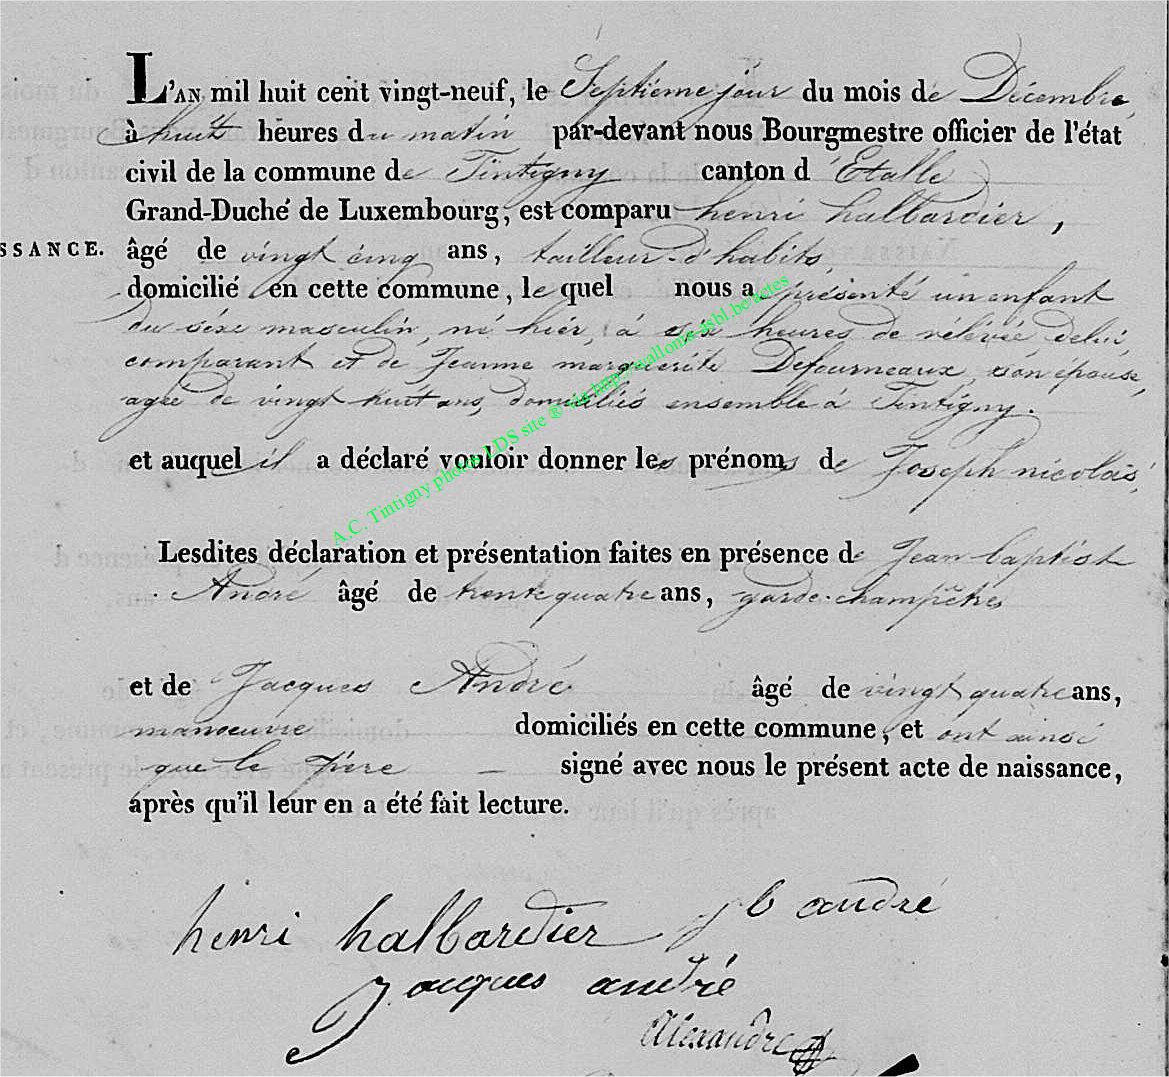 L'AN mil huit cent vingt-neuf, le Septième jour du mois de Décembre
à huit heures du matin par-devant nous Bourgmestre officier de l'état
civil de la commune de Tintigny canton d'Etalle
Grand-Duché de Luxembourg, est comparu henri halbardier,
SSANCE. âgé de vingt cinq ans, tailleur d'habits,
domicilié en cette commune, le quel nous a présenté un enfant
du séxe masculin, né hièr, à six heures de rélévée delui
comparant et de Jeanne marguerite Defourneaux, son épouse,
agée de vingt huit ans, domiciliés ensemble à Tintigny.
et auquel il a déclaré vouloir donner les prénoms de Joseph nicolas,
A.C. Tintigny photos LDS site ® via http://wallonia-asbl.be/actes
Lesdites déclaration et présentation faites en présence de Jean baptiste
André âgé de trente quatre ans, garde-champêtre
et de Jacques André âgé de vingt quatre ans,
manoeuvre domiciliés en cette commune, et ont ainsi
que le père signé avec nous le présent acte de naissance,
après qu'il leur en a été fait lecture.
henri halbardier j b andré
jacques andré
Alexandre